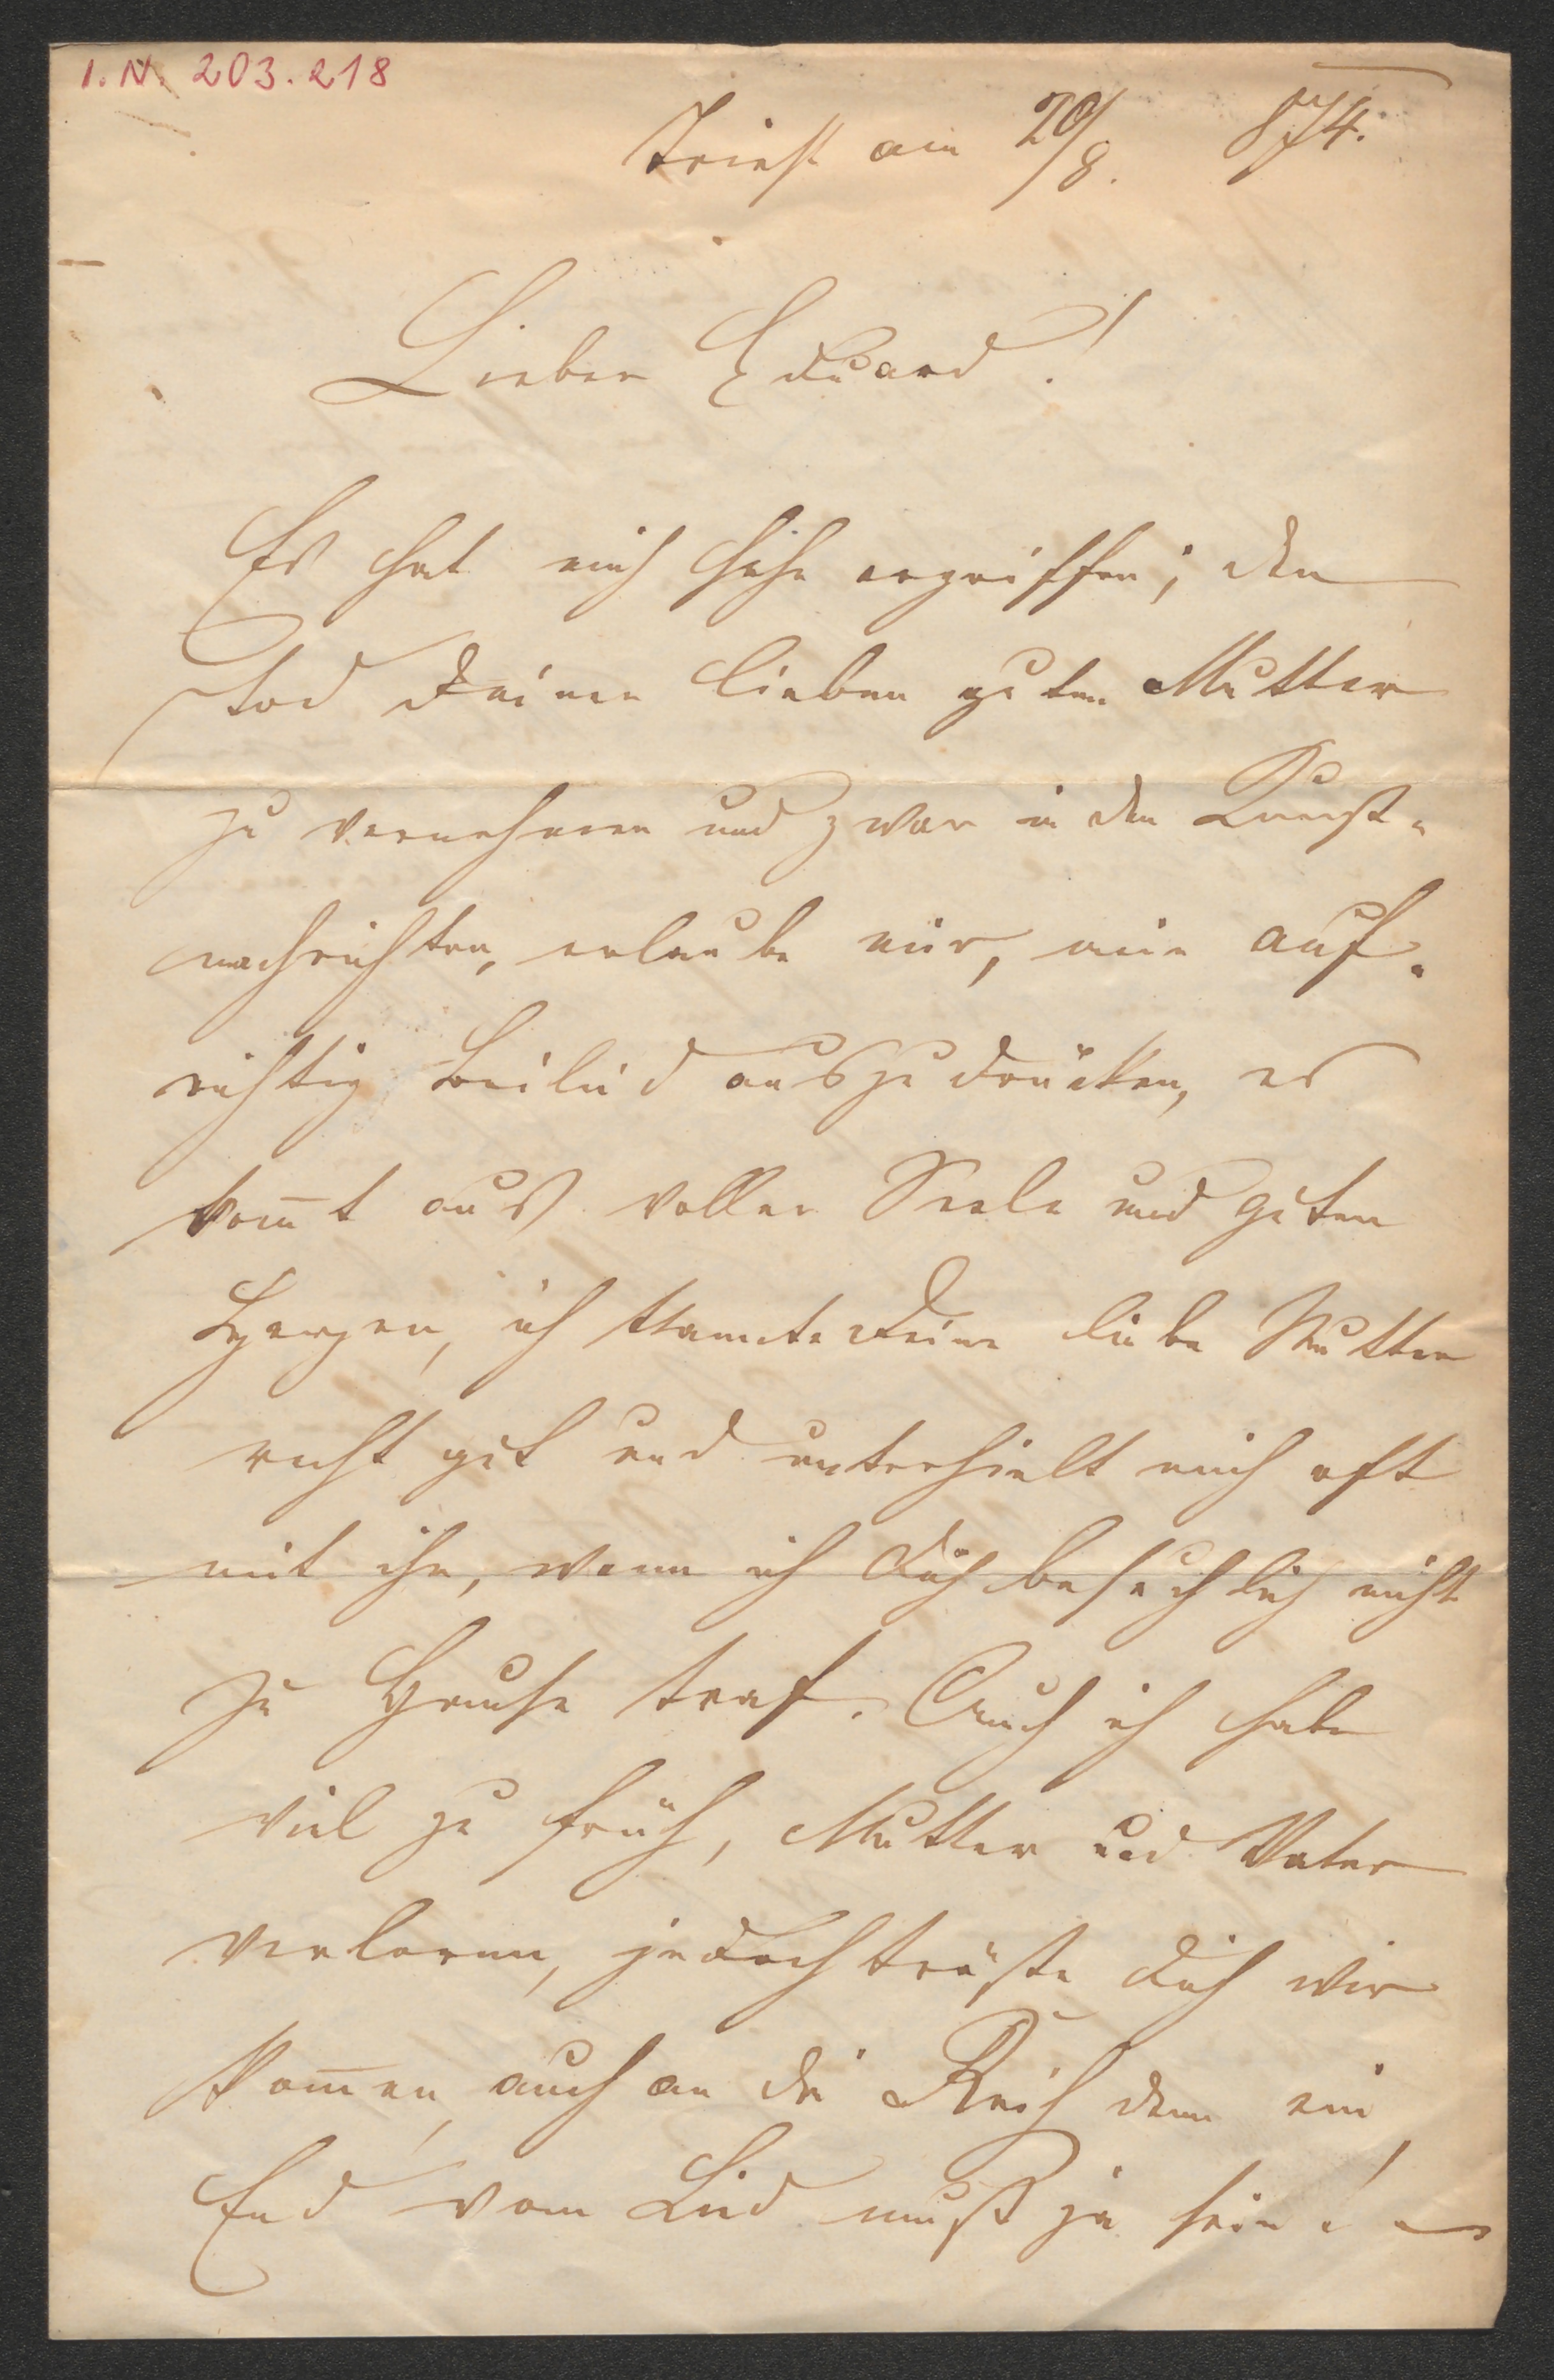 I.N. 203.218
Triest am 20/8. 874.
Lieber Eduard!
Es hat mich sehr ergriffen; den
Tod Deiner lieben guten Mutter
zu vernehmen und zwar in den Kunst-
nachrichten, erlaube mir, mein auf-
richtig Beileid auszudrücken, es
kom̄t aus voller Seele und guten
Herzen, ich kannte Deine liebe Mutter
recht gut und unterhielt mich oft
mit ihr, wenn ich Dich besuchlich nicht
zu Hause traf. Auch ich habe
viel zu früh, Mutter und Vater
verloren, jedoch tröste Dich wir
kom̄en auch an die Reih denn ein
End vom Lied muß ja sein! –